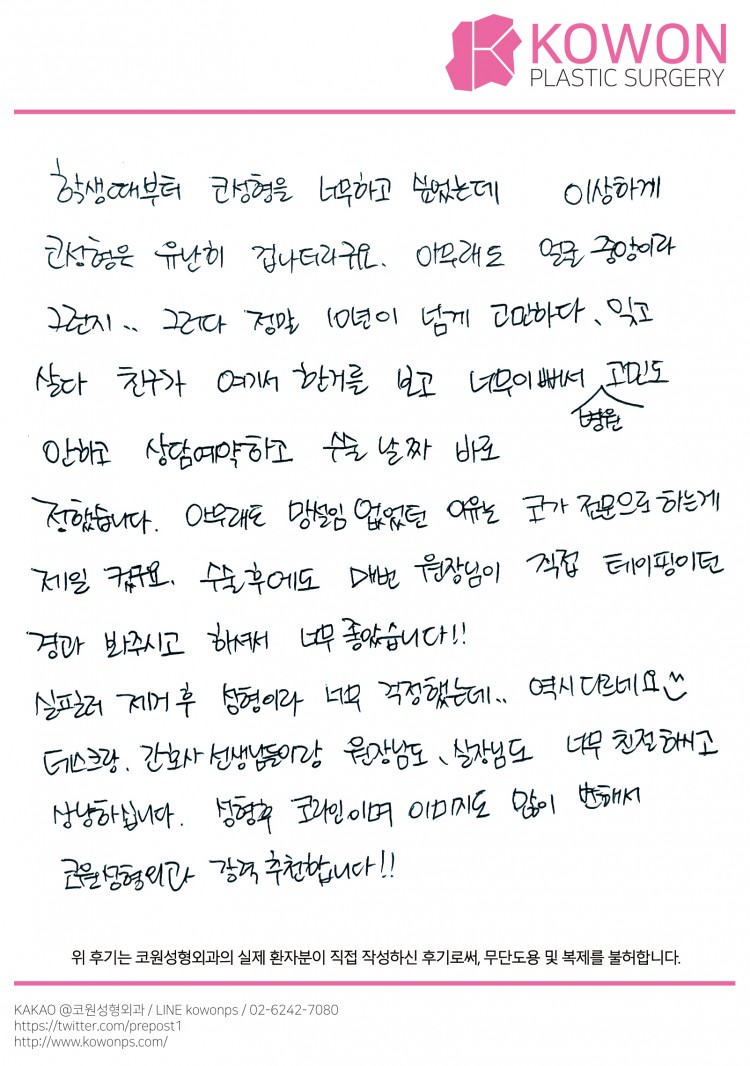 KOWON
PLASTIC SURGERY
학생때부터 코성형을 너무하고 싶었는데 이상하게
코성형은 유난히 겁나더라구요. 아무래도 얼굴 중앙이라
그런지.. 그러다 정말 10년이 넘게 고민하다、잊고
살다 친구가 여기서 한거를 보고 너무이뻐서 고민도
병원
안하고 상담예약하고 수술 날짜 바로
정했습니다. 아무래도 망설임 없었던 이유는 코가 전문으로 하는게
제일 컸구요. 수술후에도 매번 원장님이 직접 테이핑이던
경과 봐주시고 하셔서 너무 좋았습니다!!
실필러 제거후 성형이라 너무 걱정했는데.. 역시다르네요
데스크랑、간호사선생님들이랑 원장님도、실장님도 너무 친절하시고
상냥하십니다. 성형후 코라인이며 이미지도 많이 변해서
코원성형외과 강력추천합니다!!
위 후기는 코원성형외과의 실제 환자분이 직접 작성하신 후기로써, 무단도용 및 복제를 불허합니다.
KAKAO @코원성형외과 / LINE kowonps / 02-6242-7080
https://twitter.com/prepost1
http://www.kowonps.com/